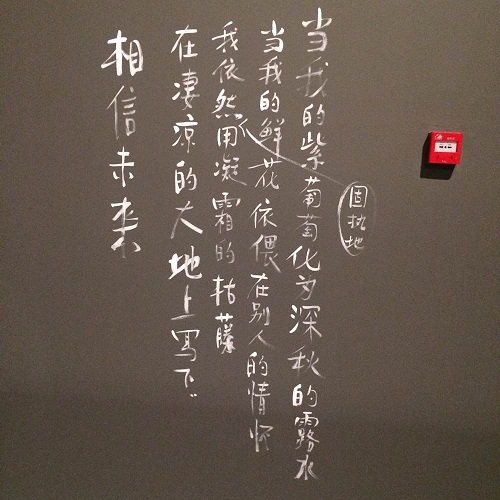 当我的紫葡萄化为深秋的露水
当我的鲜花依偎在别人的情怀
我依然用凝霜的枯藤
固执地
在凄凉的大地上寫下:
相信未来